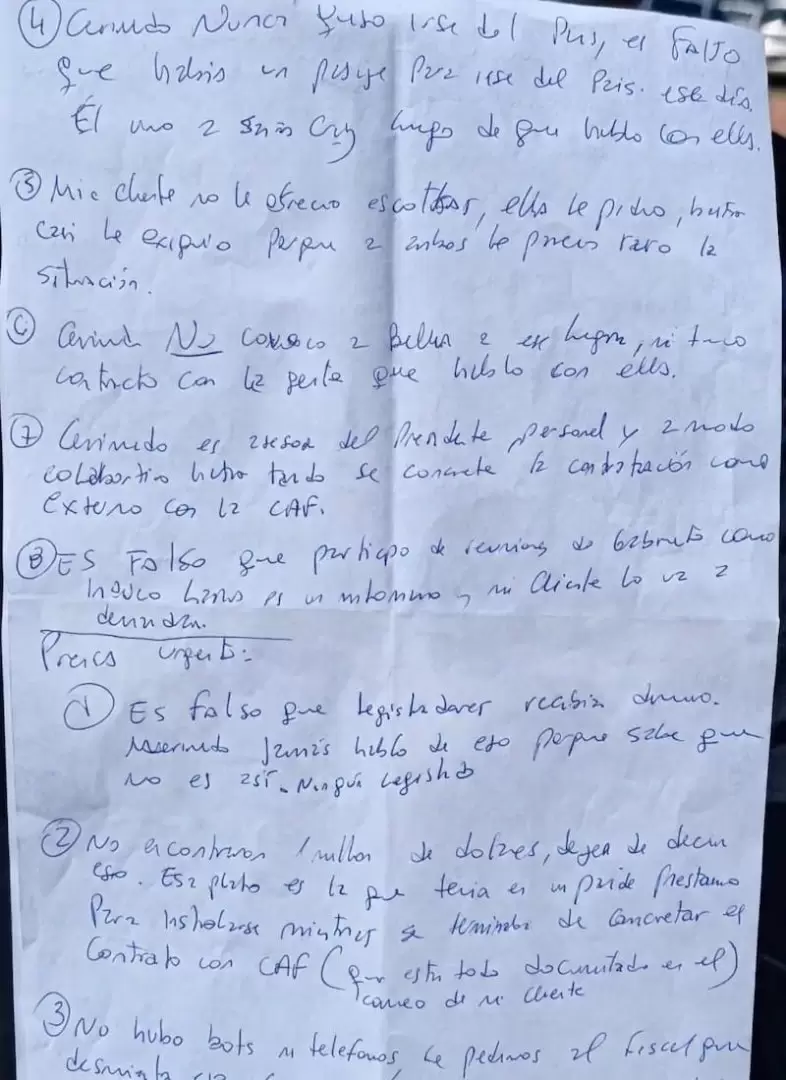 ④ Cerimedo Nunca quiso irse del País, es FALSO
que había un pasaje para irse del País. ese día.
Él vino a Santa Cruz luego de que hablo con ella.
⑤ Mi cliente no le ofreció escoltas, ella le pidió, hasta
casi le exigió porque a ambos le parecía raro la
situación.
⑥ Cerimedo NO conoció a a ese lugar, ni tuvo
contacto con la gente que hablo con ella.
⑦ Cerimedo es asesor del Presidente personal y a modo
colaborativo hasta tanto se concrete la contratación como
externo con la CAF.
⑧ ES FALSO que participo de reuniones de Gabinete como
es un mitómano y mi cliente lo va a
denunciar.
urgente:
① Es falso que legisladores recibían dinero.
jamás hablo de eso porque sabe que
no es así. Ningún Legislador
② No encontraron 1 millon de dolares, dejen de decir
eso. Esa plata es la que tenía en prestamo
Para instalarse mientras se terminaba de concretar el
Contrato con CAF (que esta todo documentado en el)
correo de mi cliente
③ No hubo bots ni telefonos, le pedimos al fiscal que
desmienta